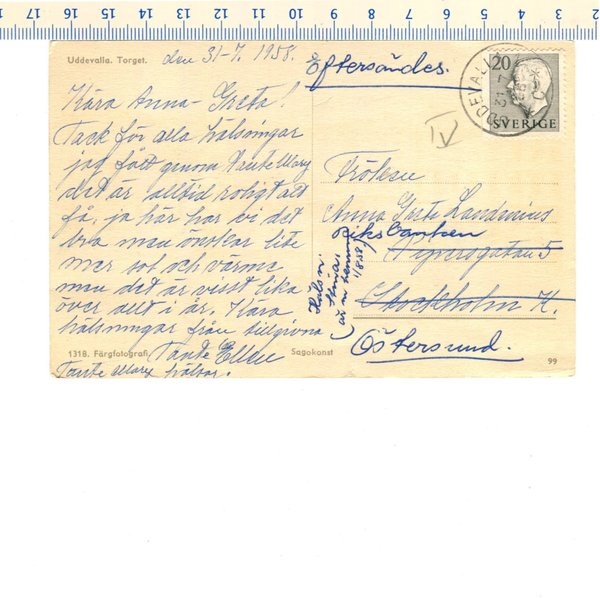 17 16 15 14 13 12 11 10 9 8 7 6 5 4 3 2
Uddevalla. Torget.
den 31-7. 1958.
Kära Anna-Greta!
Tack för alla hälsningar
jag fått genom Tante Mary
det är alltid roligt att
få, ja här har vi det
bra men önskar lite
mer sol och värme
men det är visst lika
över allt i år. Kära
hälsningar från tillgivna
Tante Ellen
Tante Mary hälsar.
1318. Färgfotografi
Sagokonst
99
Eftersändes.
UDDEVALLA
20
SVERIGE
IV
Fröken
Anna Greta
Riksbanken
5
Stockholm K.
Östersund.
Hälsn.
1/8 58